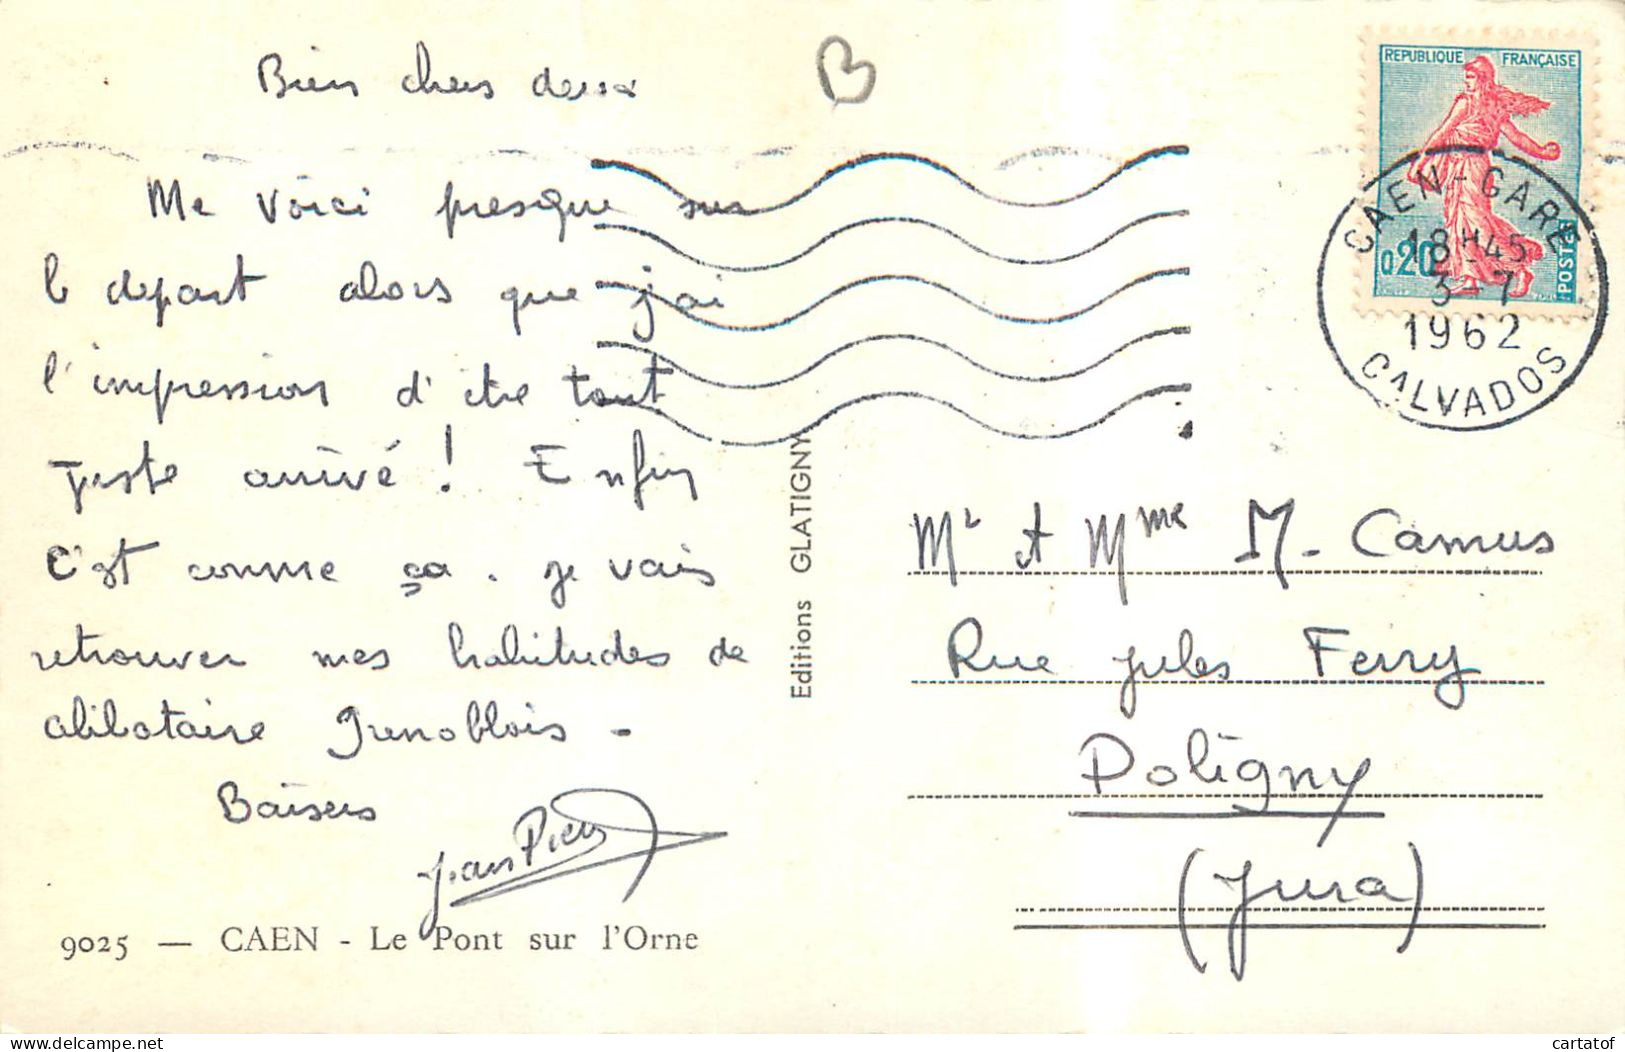 Bien chers deux
B
Me voici presque sur
le depart alors que j'ai
l'impression d'être tout
juste arrivé ! Enfin
c'est comme ça. je vais
retrouver mes habitudes de
célibataire grenoblois -
Baisers
Jean Pierre
9025 — CAEN - Le Pont sur l'Orne
Editions GLATIGNY
REPUBLIQUE FRANÇAISE
0,20
POSTES
CAEN - GARE
18H45
3-7
1962
CALVADOS
Mr et Mme M. Camus
Rue Jules Ferry
Poligny
(Jura)
cartatof